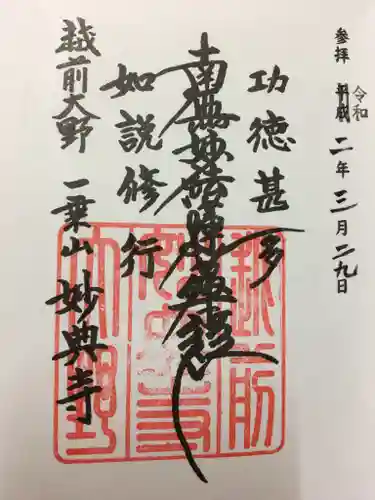 参拝 平成 令和 二年三月二九日
功徳甚多
南無妙法蓮華経
如説修行
越前大野 一乗山 妙典寺